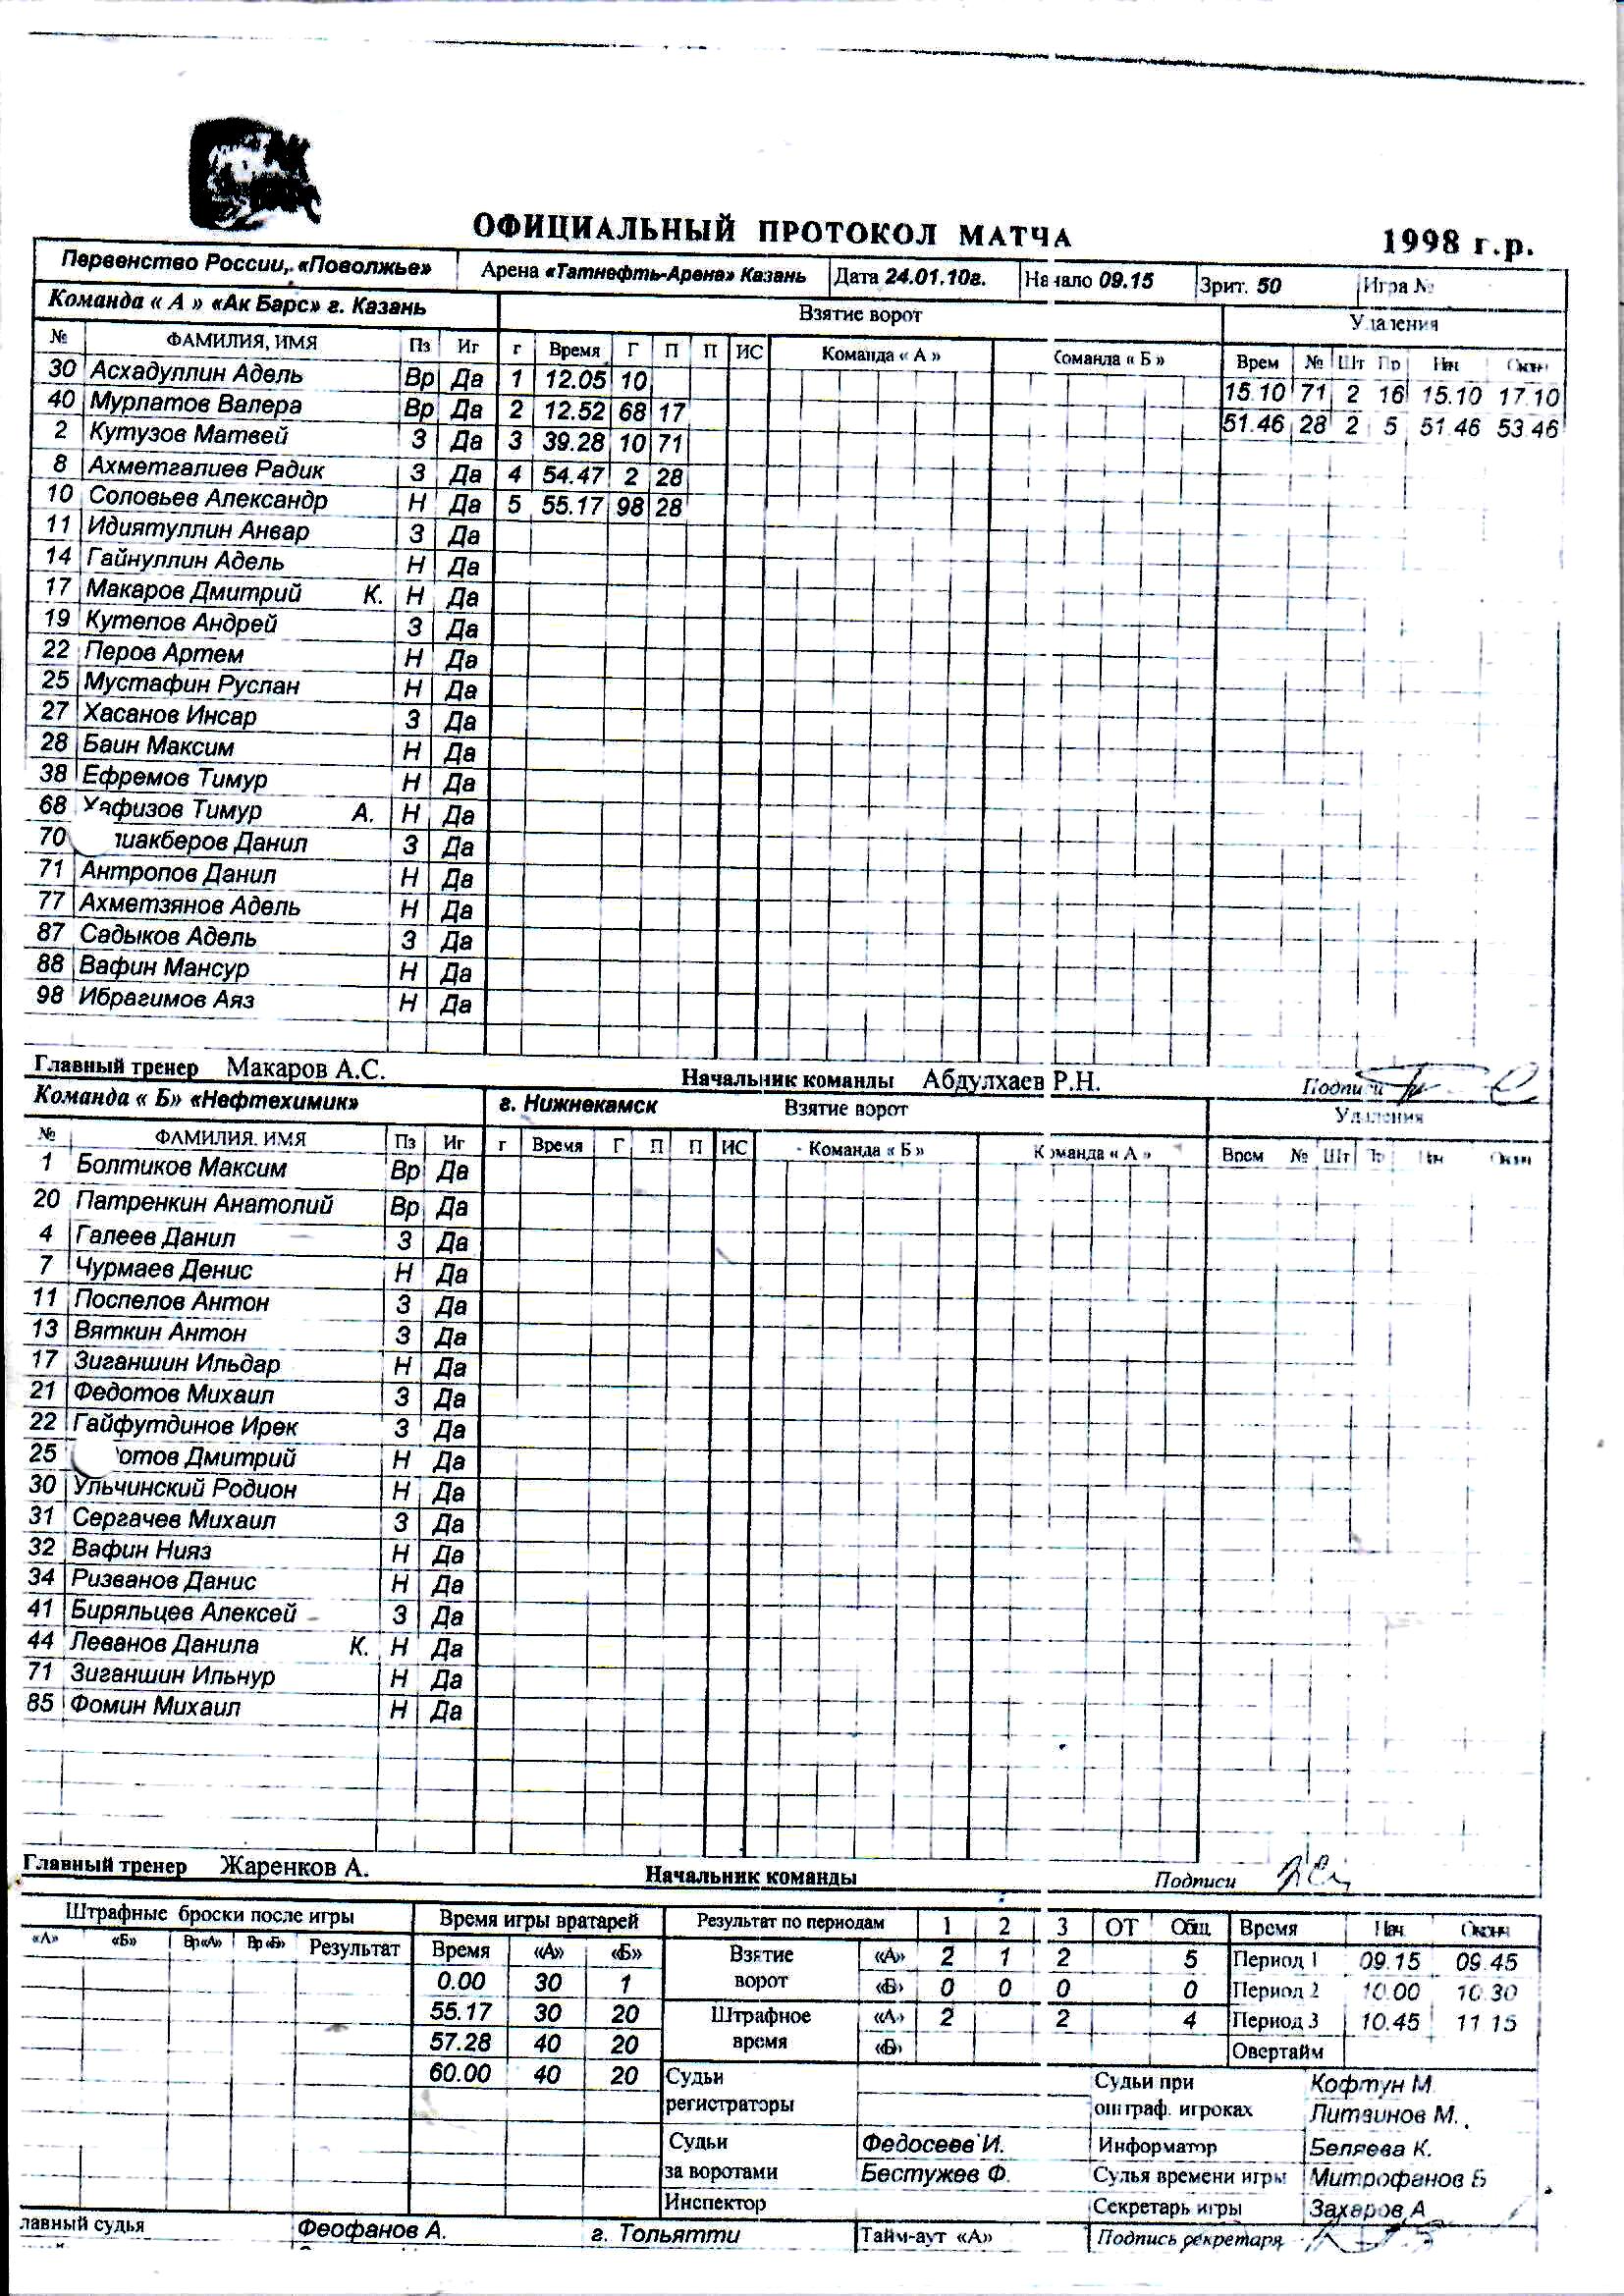 АК БАРС
ОФИЦИАЛЬНЫЙ ПРОТОКОЛ МАТЧА 1998 г.р.
Первенство России, «Поволжье» Арена «Татнефть-Арена» Казань Дата 24.01.10г. Начало 09.15 Зрит. 50 Игра №
Команда « А » «Ак Барс» г. Казань Взятие ворот Удаления
№ ФАМИЛИЯ, ИМЯ Пз Иг г Время Г П П ИС Команда « А » Команда « Б » Врем № Шт Пр Нач Оконч
30 Асхадуллин Адель Вр Да 1 12.05 10 15.10 71 2 16 15.10 17.10
40 Мурлатов Валера Вр Да 2 12.52 68 17 51.46 28 2 5 51.46 53.46
2 Кутузов Матвей З Да 3 39.28 10 71
8 Ахметгалиев Радик З Да 4 54.47 2 28
10 Соловьев Александр Н Да 5 55.17 98 28
11 Идиятуллин Анвар З Да
14 Гайнуллин Адель Н Да
17 Макаров Дмитрий К. Н Да
19 Кутепов Андрей З Да
22 Перов Артем Н Да
25 Мустафин Руслан Н Да
27 Хасанов Инсар З Да
28 Баин Максим Н Да
38 Ефремов Тимур Н Да
68 Хафизов Тимур А. Н Да
70 Данил З Да
71 Антропов Данил Н Да
77 Ахметзянов Адель Н Да
87 Садыков Адель З Да
88 Вафин Мансур Н Да
98 Ибрагимов Аяз Н Да
Главный тренер Макаров А.С. Начальник команды Абдулхаев Р.Н. Подписи
Команда « Б» «Нефтехимик» г. Нижнекамск Взятие ворот Удаления
№ ФАМИЛИЯ. ИМЯ Пз Иг г Время Г П П ИС Команда « Б » Команда « А » Врем № Шт Пр Нач Оконч
1 Болтиков Максим Вр Да
20 Патренкин Анатолий Вр Да
4 Галеев Данил З Да
7 Чурмаев Денис Н Да
11 Поспелов Антон З Да
13 Вяткин Антон З Да
17 Зиганшин Ильдар Н Да
21 Федотов Михаил З Да
22 Гайфутдинов Ирек З Да
25 Дмитрий Н Да
30 Ульчинский Родион Н Да
31 Сергачев Михаил З Да
32 Вафин Нияз Н Да
34 Ризванов Данис Н Да
41 Биряльцев Алексей З Да
44 Леванов Данила К. Н Да
71 Зиганшин Ильнур Н Да
85 Фомин Михаил Н Да
Главный тренер Жаренков А. Начальник команды Подписи
Штрафные броски после игры Время игры вратарей Результат по периодам 1 2 3 ОТ Общ Время Нач Оконч
«А» «Б» Вр«А» Вр«Б» Результат Время «А» «Б» Взятие ворот «А» 2 1 2 5 Период 1 09.15 09.45
0.00 30 1 «Б» 0 0 0 0 Период 2 10.00 10.30
55.17 30 20 Штрафное время «А» 2 2 4 Период 3 10.45 11 15
57.28 40 20 «Б» Овертайм
60.00 40 20 Судьи регистраторы Судьи при оштраф. игроках Кофтун М
Литвинов М.
Судьи за воротами Федосеев И. Информатор Беляева К.
Бестужев Ф. Судья времени игры Митрофанов Б
Инспектор Секретарь игры Захаров А
лавный судья Феофанов А. г. Тольятти Тайм-аут «А» Подпись секретаря